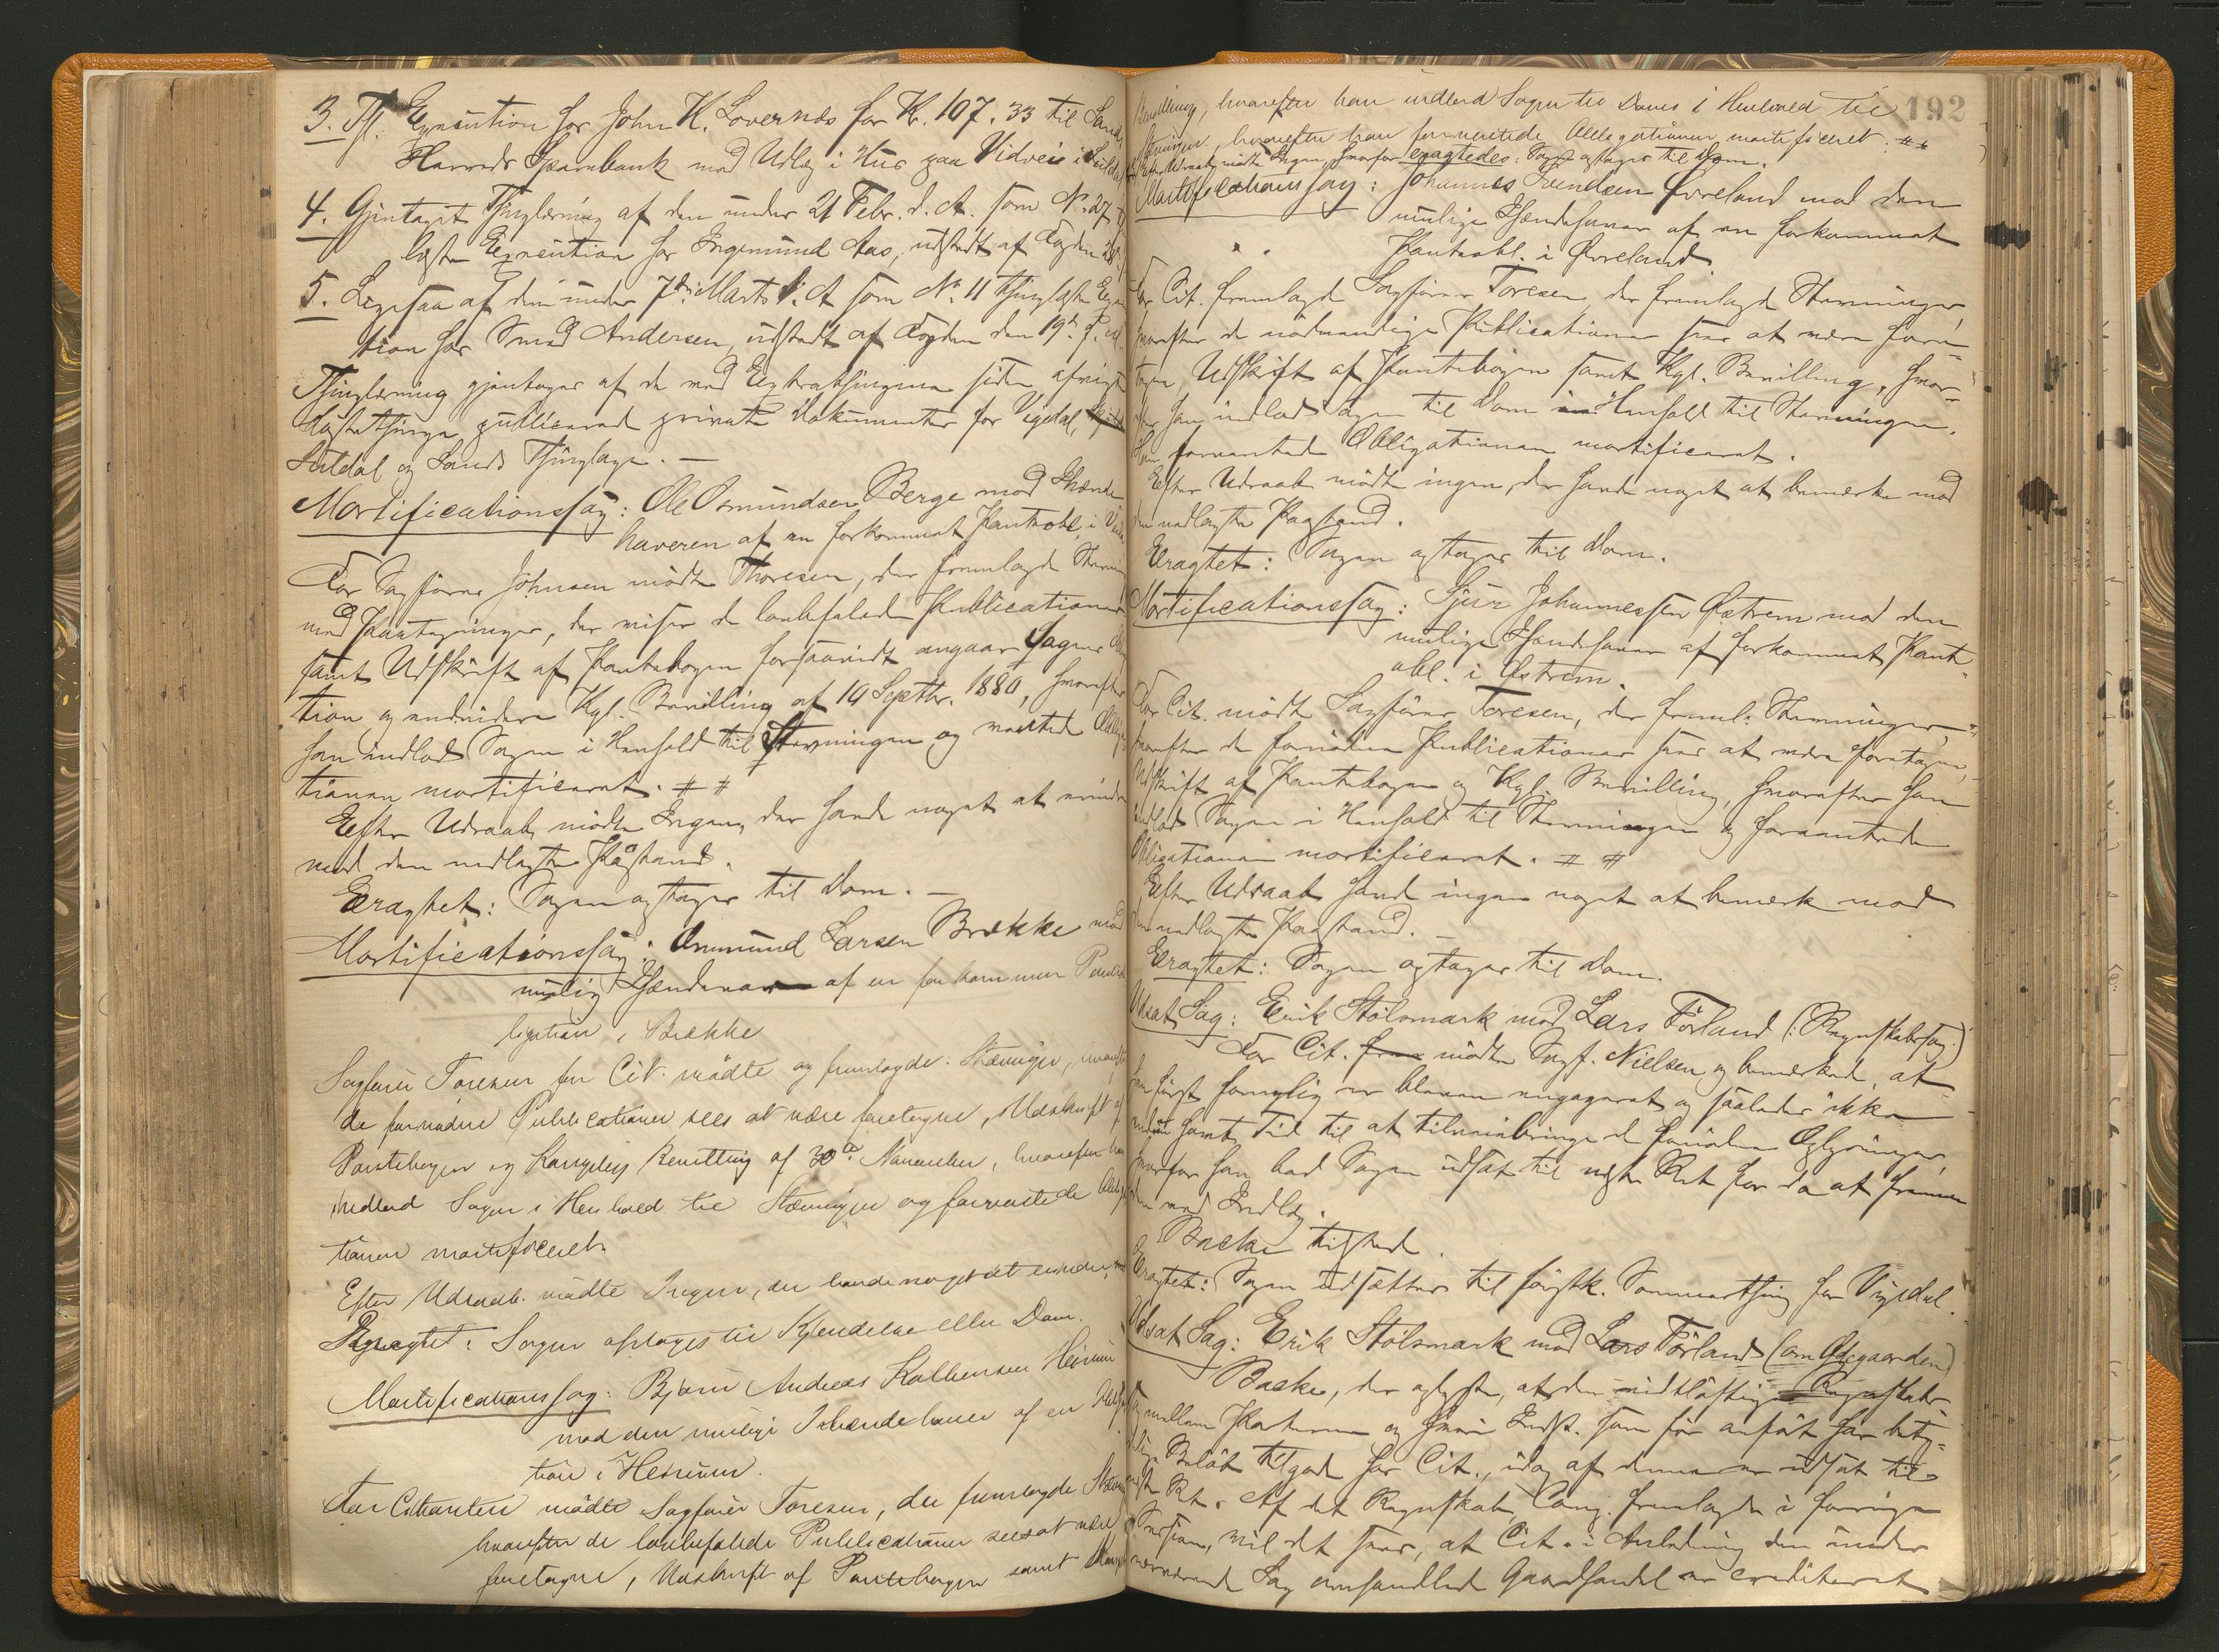 3. Tgl. Execution hos John K. Lovernds for Kr. 107.33 til Sands
Herreds Sparebank med Udlæg i Hus paa Vidveis i Suldal
4. Gjentaget Thinglæsning af den under 21 Febr. d. A. som No 27
læste Execution hos Ingemund Aas, udstedt af Fogden
5. Ligesaa af den under 7de Marts d. A. som No 11 thinglæste Execu
tion hos Andersen, udstedt af Fogden den 19de
Thinglæsning gjentages af de ved Extrathingene siden afvigte
Høstethinge publicerede private Dokumenter for Vigedal,
Suldal og Sands Thinglage. —
Mortificationssag: Ole Osmundsen Berge mod Ihænde
haveren af en forkommet Panteobl. i
For Sagfører Johnsen mødte Thoresen, der fremlagde Stævning
med Paategninger, der viser de lovbefalede Publicationer
samt Udskrift af Pantebogen forsaavidt angaar Sagens
tion og endvidere Kgl. Bevilling af 14 Septbr. 1880, hvorefter
han indlod Sagen i Henhold til Stævningen og Obliga
tionen mortificeret. # #
Efter Udraab mødte Ingen, der havde noget at erindre
mod den nedlagte Påstand.
Eragtet: Sagen optages til Dom. —
Mortificationssag: Omund Larsen Brække mod
mulig Ihændehaver af en forkommen
ligation i Brække
Sagfører Toresen for Cit. mødte og fremlagde: Stævning, hvorefter
de fornødne Publicationer sees at være foretagne, Udskrift af
Pantebogen og Kongelig Bevilling af 30te November, hvorefter han
indlod Sagen i Henhold til Stævningen og forventede Obliga
tionen mortificeret.
Efter Udraab mødte Ingen, der havde noget at erindre,
Eragtet: Sagen optages til Kjendelse eller Dom.
Mortificationssag: Bjørn Andreas Kolbensen
mod den mulige Ihændehaver af en
tion i
For Citanten mødte Sagfører Toresen, der fremlagde Stævn
hvorefter de lovbefalede Publicationer sees at være
foretagne, Udskrift af Pantebogen samt
192
Bevilling, hvorefter han indlod Sagen til Doms i Henhold til
Stævningen, hvorefter han forventede Obligationen mortificeret. # #
Efter Udraab mødte Ingen, hvorfor eragtedes: Sagen optages til Dom.
Mortificationssag: Johannes Svendsen Øvreland mod den
mulige Ihændehaver af en forkommet
Panteobl. i Øvreland.
For Cit. fremlagde Sagfører Toresen der fremlagde Stævninger,
hvorefter de nødvendige Publicationer sees at være fore=
tagne, Udskrift af Pantebogen samt Kgl. Bevilling, hvor=
efter han indlod Sagen til Dom i Henhold til Stævningen.
Han forventede Obligationen mortificeret.
Efter Udraab mødte ingen, der havde noget at bemærke mod
den nedlagte Paastand.
Eragtet: Sagen optages til Dom.
Mortificationssag: Sjur Johannessen Østrem mod den
mulige Ihændehaver af forkommet Pante
obl. i Østrem.
For Cit. mødte Sagfører Toresen, der freml. Stævninger,
hvorefter de fornødne Publicationer sees at være foretagne,
Udskrift af Pantebogen og Kgl. Bevilling, hvorefter han
indlod Sagen i Henhold til Stævningen og forventede
Obligationen mortificeret. # #
Efter Udraab havde ingen noget at bemærke mod
den nedlagte Paastand. —
Eragtet: Sagen optages til Dom.
Udsat Sag: Erik Stølsmark mod Lars Førland (: Regnskabssag:)
For Cit. mødte Sagf. Nielsen og bemærkede, at
han først fornylig er bleven engageret og saaledes ikke
har havt Tid til at tilveiebringe de fornødne Oplysninger,
hvorfor han bad Sagen udsat til næste Ret for da at fremme
den med Indlæg.
Bache tilstede.
Eragtet: Sagen udsættes til førstk. Sommerthing for Vigedal.
Udsat Sag: Erik Stølsmark mod Lars Førland (om Ødegaarden)
Bache, der oplyste, at den vidtløftige Regnskabs
sag mellem Parterne og hvori Indst. som før anført har bety=
delige Beløb tilgode hos Cit., idag af denne er udsat til
næste Ret. Af det Regnskab, Cit. fremlagde i forrige
Session, vil det sees, at Cit. i Anledning den under
nærværende Sag omhandlede Gaardhandel er crediteret